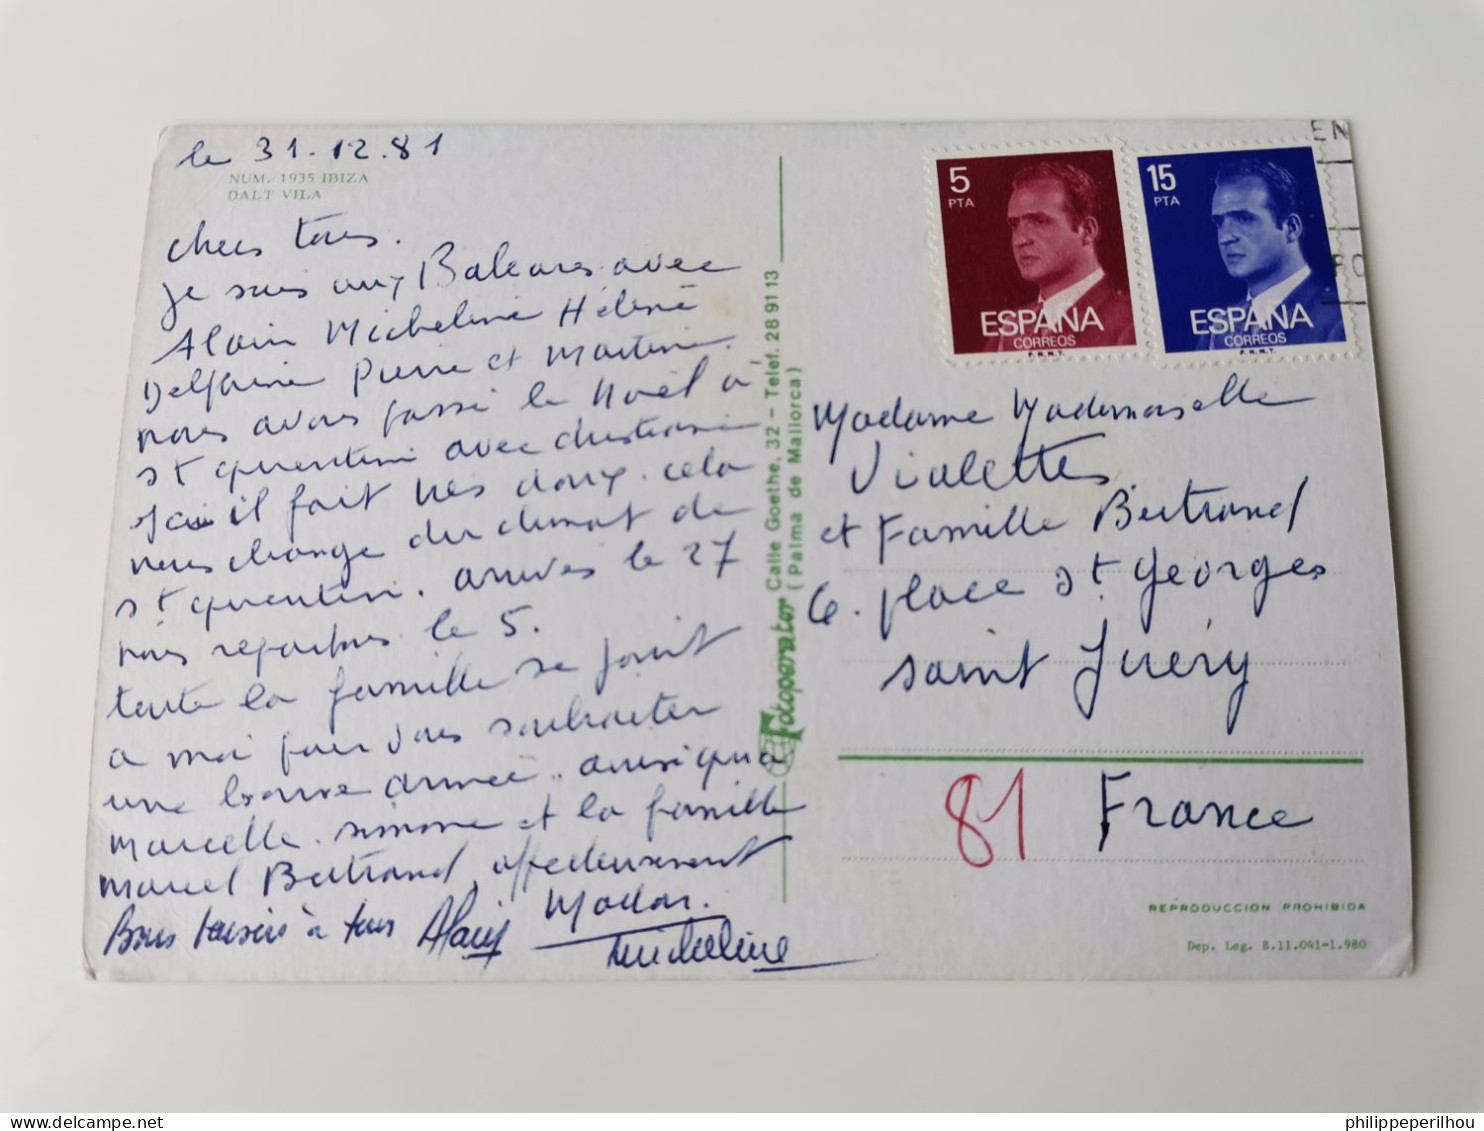 le 31.12.81
NUM. 1935 IBIZA
DALT VILA
chers tous.
je suis aux Baleares avec
Alain Micheline Hélène
Delphine Pierre et Martine.
nous avons passé le Noël à
st quentin avec christiane
ici il fait très doux. cela
nous change du climat de
st quentin. arrivés le 27
nous repartons le 5.
toute la famille se joint
a moi pour vous souhaiter
une bonne année. ainsi qu'a
Marcelle. simone et la famille
Marcel Bertrand affectueusement
Bons baisers à tous Alain
Micheline
Fotoperator Calle Goethe, 32 - Telef. 28 91 13
(Palma de Mallorca)
5
PTA
ESPAÑA
CORREOS
F.N.M.T.
15
PTA
ESPAÑA
CORREOS
F.N.M.T.
EN
Madame Mademoiselle
Vialettes
et Famille Bertrand
6. place st Georges
saint Juéry
81 France
REPRODUCCION PROHIBIDA
Dep. Leg. B.11.041-1.980
philippeperilhou